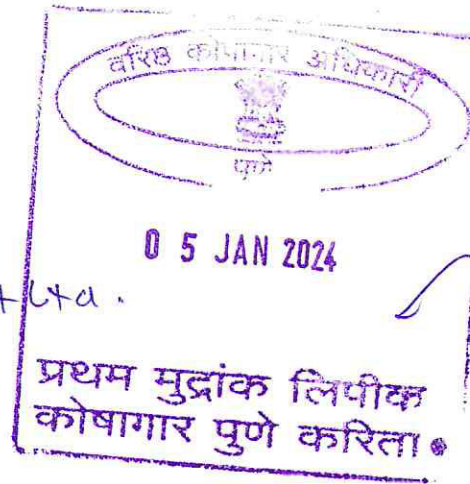 वरिष्ठ कोषागार अधिकारी
पुणे
0 5 JAN 2024
Ltd.
प्रथम मुद्रांक लिपीक
कोषागार पुणे करिता